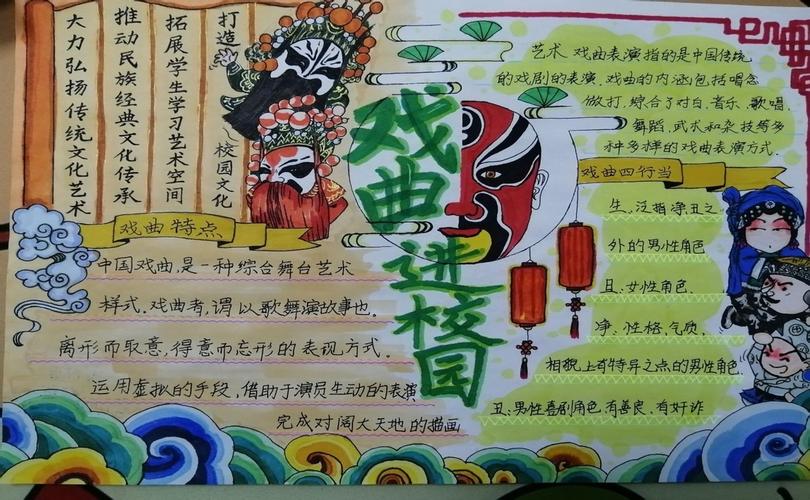 打造
校园文化
拓展学生学习艺术空间
推动民族经典文化传承
大力弘扬传统文化艺术
戏曲进校园
戏曲特点
中国戏曲,是一种综合舞台艺术
样式.戏曲者,谓以歌舞演故事也.
离形而取意,得意而忘形的表现方式.
运用虚拟的手段,借助于演员生动的表演
完成对阔大天地的描画
艺术 戏曲表演指的是中国传统
的戏剧的表演.戏曲的内涵包括唱念
做打,综合了对白.音乐、歌唱.
舞蹈,武术和杂技等多
种多样的戏曲表演方式.
戏曲四行当
生:泛指净丑之
外的男性角色
旦:女性角色.
净:性格,气质.
相貌上有特异之点的男性角色.
丑:男性喜剧角色.有善良.有奸诈